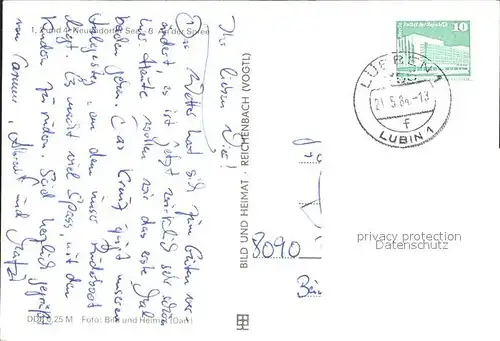 1, 3 und 4 Neuendorfer See
8 An der Spree
Ihr lieben Vier!
Das Wetter hat sich zum Guten ver-
ändert, es ist jetzt wirklich sehr schön
Heute wollen wir das erste Mal
baden gehen. Das Kreuz zeigt unseren
Anlegesteg, an dem unser Ruderboot
liegt. Es macht viel Spass, mit den
Kindern zu rudern. Seid herzlich gegrüßt
von Carmen, Albrecht und
DDR 0,25 M Foto: Bild und Heimat (Darr)
BILD UND HEIMAT · REICHENBACH (VOGTL)
8090
10
LÜBBEN 1
21.5.84-13
LUBIN 1
privacy protection
Datenschutz